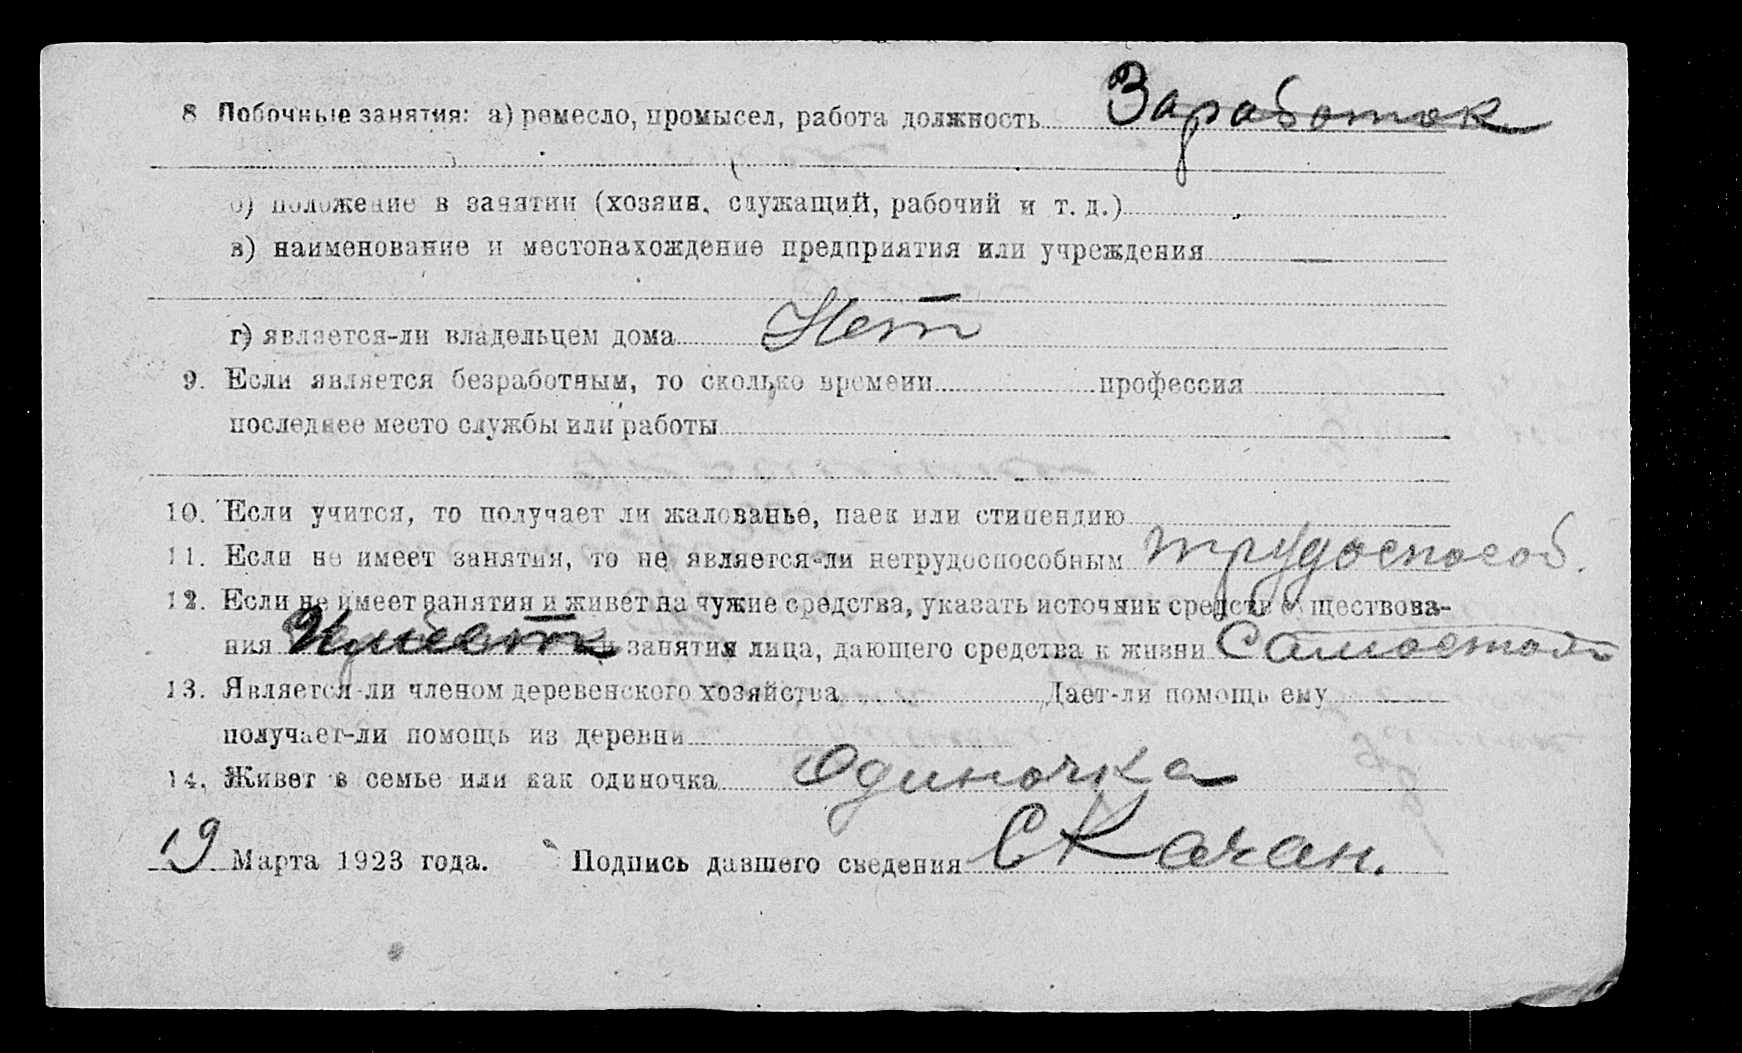 8 Побочные занятия: а) ремесло, промысел, работа должность Заработок
б) положение в занятии (хозяин, служащий, рабочий и т. д.)
в) наименование и местонахождение предприятия или учреждения
г) является-ли владельцем дома Нет
9. Если является безработным, то сколько времени профессия
последнее место службы или работы
10. Если учится, то получает ли жалованье, паек или стипендию
11. Если не имеет занятия, то не является-ли нетрудоспособным трудоспособ.
12. Если не имеет занятия и живет на чужие средства, указать источник средств существова-
ния и занятия лица, дающего средства к жизни Самостоят
13. Является-ли членом деревенского хозяйства Дает-ли помощь ему
получает-ли помощь из деревни
14. Живет в семье или как одиночка Одиночка
19 Марта 1923 года. Подпись давшего сведения СКачан.